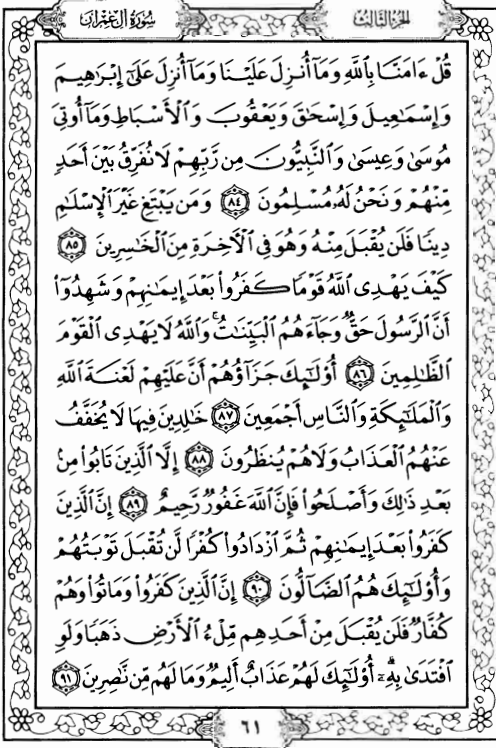 سُورَةُ آلِ عِمْرَانَ
الجُزْءُ الثَّالِثُ
قُلْ ءَامَنَّا بِٱللَّهِ وَمَآ أُنزِلَ عَلَيْنَا وَمَآ أُنزِلَ عَلَىٰٓ إِبْرَٰهِيمَ
وَإِسْمَٰعِيلَ وَإِسْحَٰقَ وَيَعْقُوبَ وَٱلْأَسْبَاطِ وَمَآ أُوتِيَ
مُوسَىٰ وَعِيسَىٰ وَٱلنَّبِيُّونَ مِن رَّبِّهِمْ لَا نُفَرِّقُ بَيْنَ أَحَدٍ
مِّنْهُمْ وَنَحْنُ لَهُۥ مُسْلِمُونَ ٨٤ وَمَن يَبْتَغِ غَيْرَ ٱلْإِسْلَٰمِ
دِينًا فَلَن يُقْبَلَ مِنْهُ وَهُوَ فِي ٱلْأٓخِرَةِ مِنَ ٱلْخَٰسِرِينَ ٨٥
كَيْفَ يَهْدِي ٱللَّهُ قَوْمًا كَفَرُوا۟ بَعْدَ إِيمَٰنِهِمْ وَشَهِدُوٓا۟
أَنَّ ٱلرَّسُولَ حَقٌّ وَجَآءَهُمُ ٱلْبَيِّنَٰتُ ۚ وَٱللَّهُ لَا يَهْدِي ٱلْقَوْمَ
ٱلظَّٰلِمِينَ ٨٦ أُو۟لَٰٓئِكَ جَزَآؤُهُمْ أَنَّ عَلَيْهِمْ لَعْنَةَ ٱللَّهِ
وَٱلْمَلَٰٓئِكَةِ وَٱلنَّاسِ أَجْمَعِينَ ٨٧ خَٰلِدِينَ فِيهَا لَا يُخَفَّفُ
عَنْهُمُ ٱلْعَذَابُ وَلَا هُمْ يُنظَرُونَ ٨٨ إِلَّا ٱلَّذِينَ تَابُوا۟ مِنۢ
بَعْدِ ذَٰلِكَ وَأَصْلَحُوا۟ فَإِنَّ ٱللَّهَ غَفُورٌ رَّحِيمٌ ٨٩ إِنَّ ٱلَّذِينَ
كَفَرُوا۟ بَعْدَ إِيمَٰنِهِمْ ثُمَّ ٱزْدَادُوا۟ كُفْرًا لَّن تُقْبَلَ تَوْبَتُهُمْ
وَأُو۟لَٰٓئِكَ هُمُ ٱلضَّآلُّونَ ٩٠ إِنَّ ٱلَّذِينَ كَفَرُوا۟ وَمَاتُوا۟ وَهُمْ
كُفَّارٌ فَلَن يُقْبَلَ مِنْ أَحَدِهِم مِّلْءُ ٱلْأَرْضِ ذَهَبًا وَلَوِ
ٱفْتَدَىٰ بِهِۦٓ ۗ أُو۟لَٰٓئِكَ لَهُمْ عَذَابٌ أَلِيمٌ وَمَا لَهُم مِّن نَّٰصِرِينَ ٩١
٦١